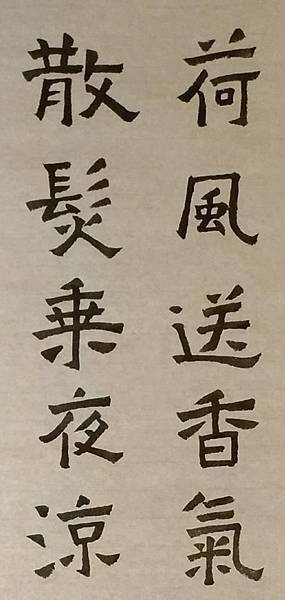 荷風送香氣
散髮乗夜涼